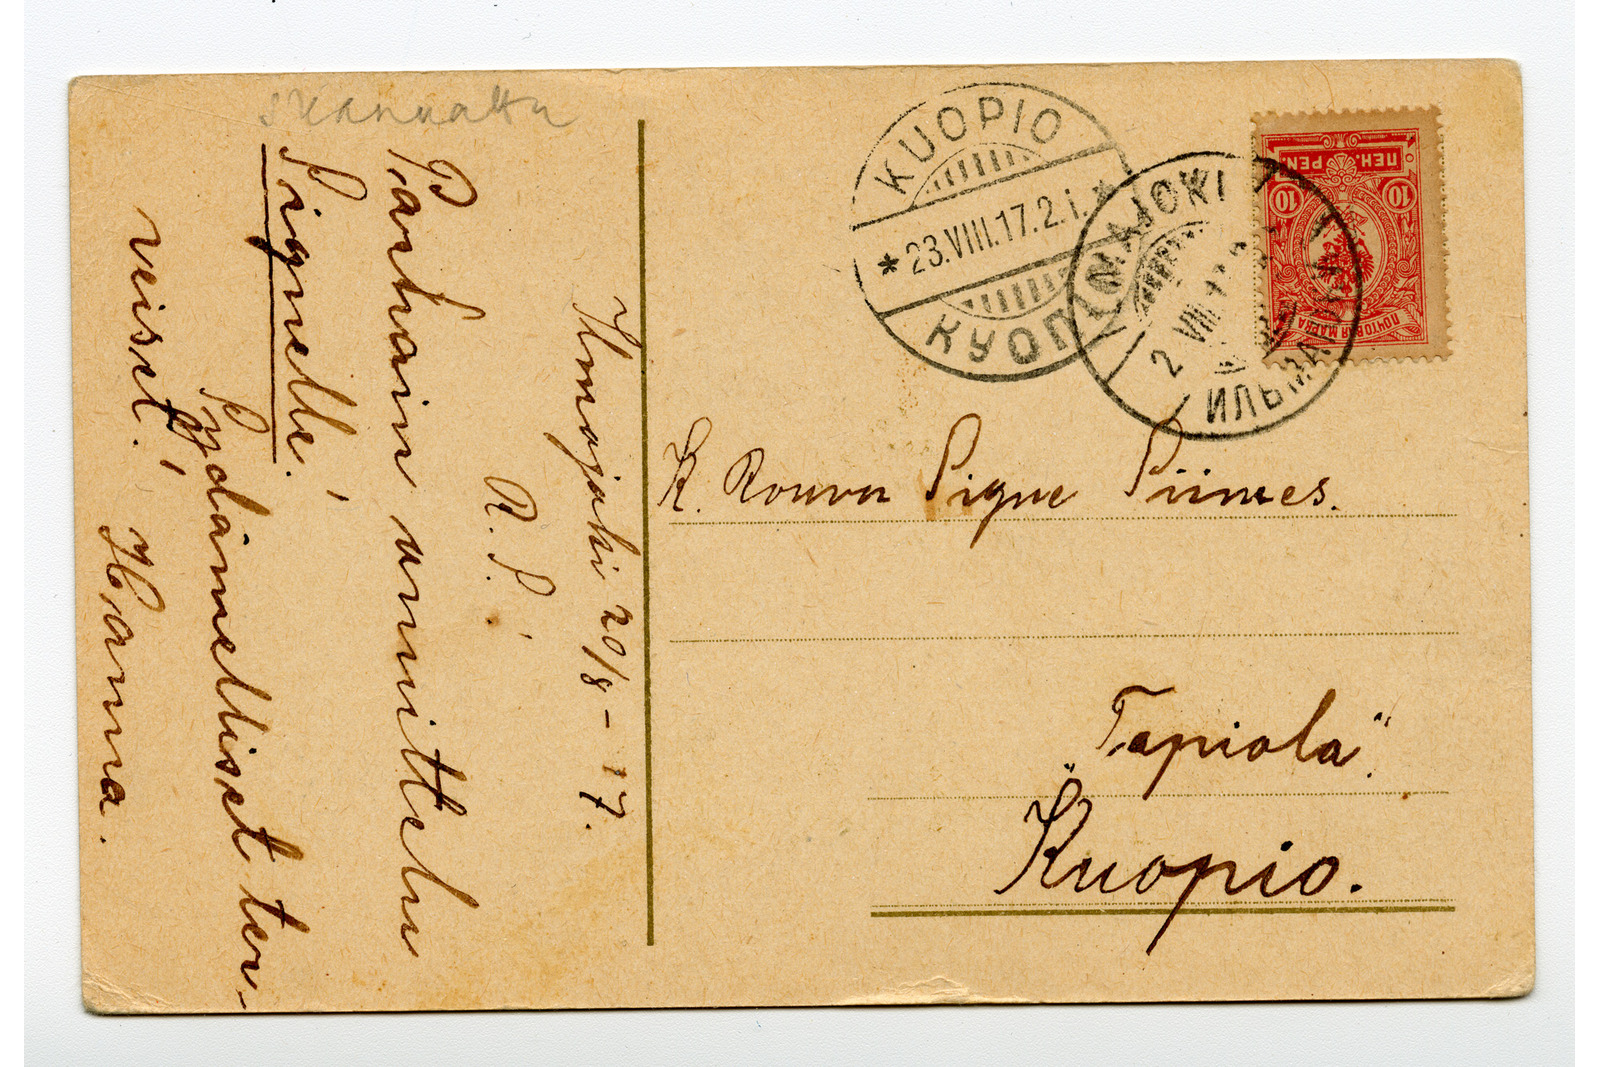 skannattu
Ilmajoki 20/8 – 17.
R. S.!
Parhain onnittelu
Signelle!
Sydämelliset ter-
veiset!
Hanna.
KUOPIO
* 23.VIII.17.2.i. *
ILMAJOKI
2 VIII
10 ПЕН. PEN. 10
ПОЧТОВАЯ МАРКА
K. Rouva Signe Siimes.
„Tapiola".
Kuopio.